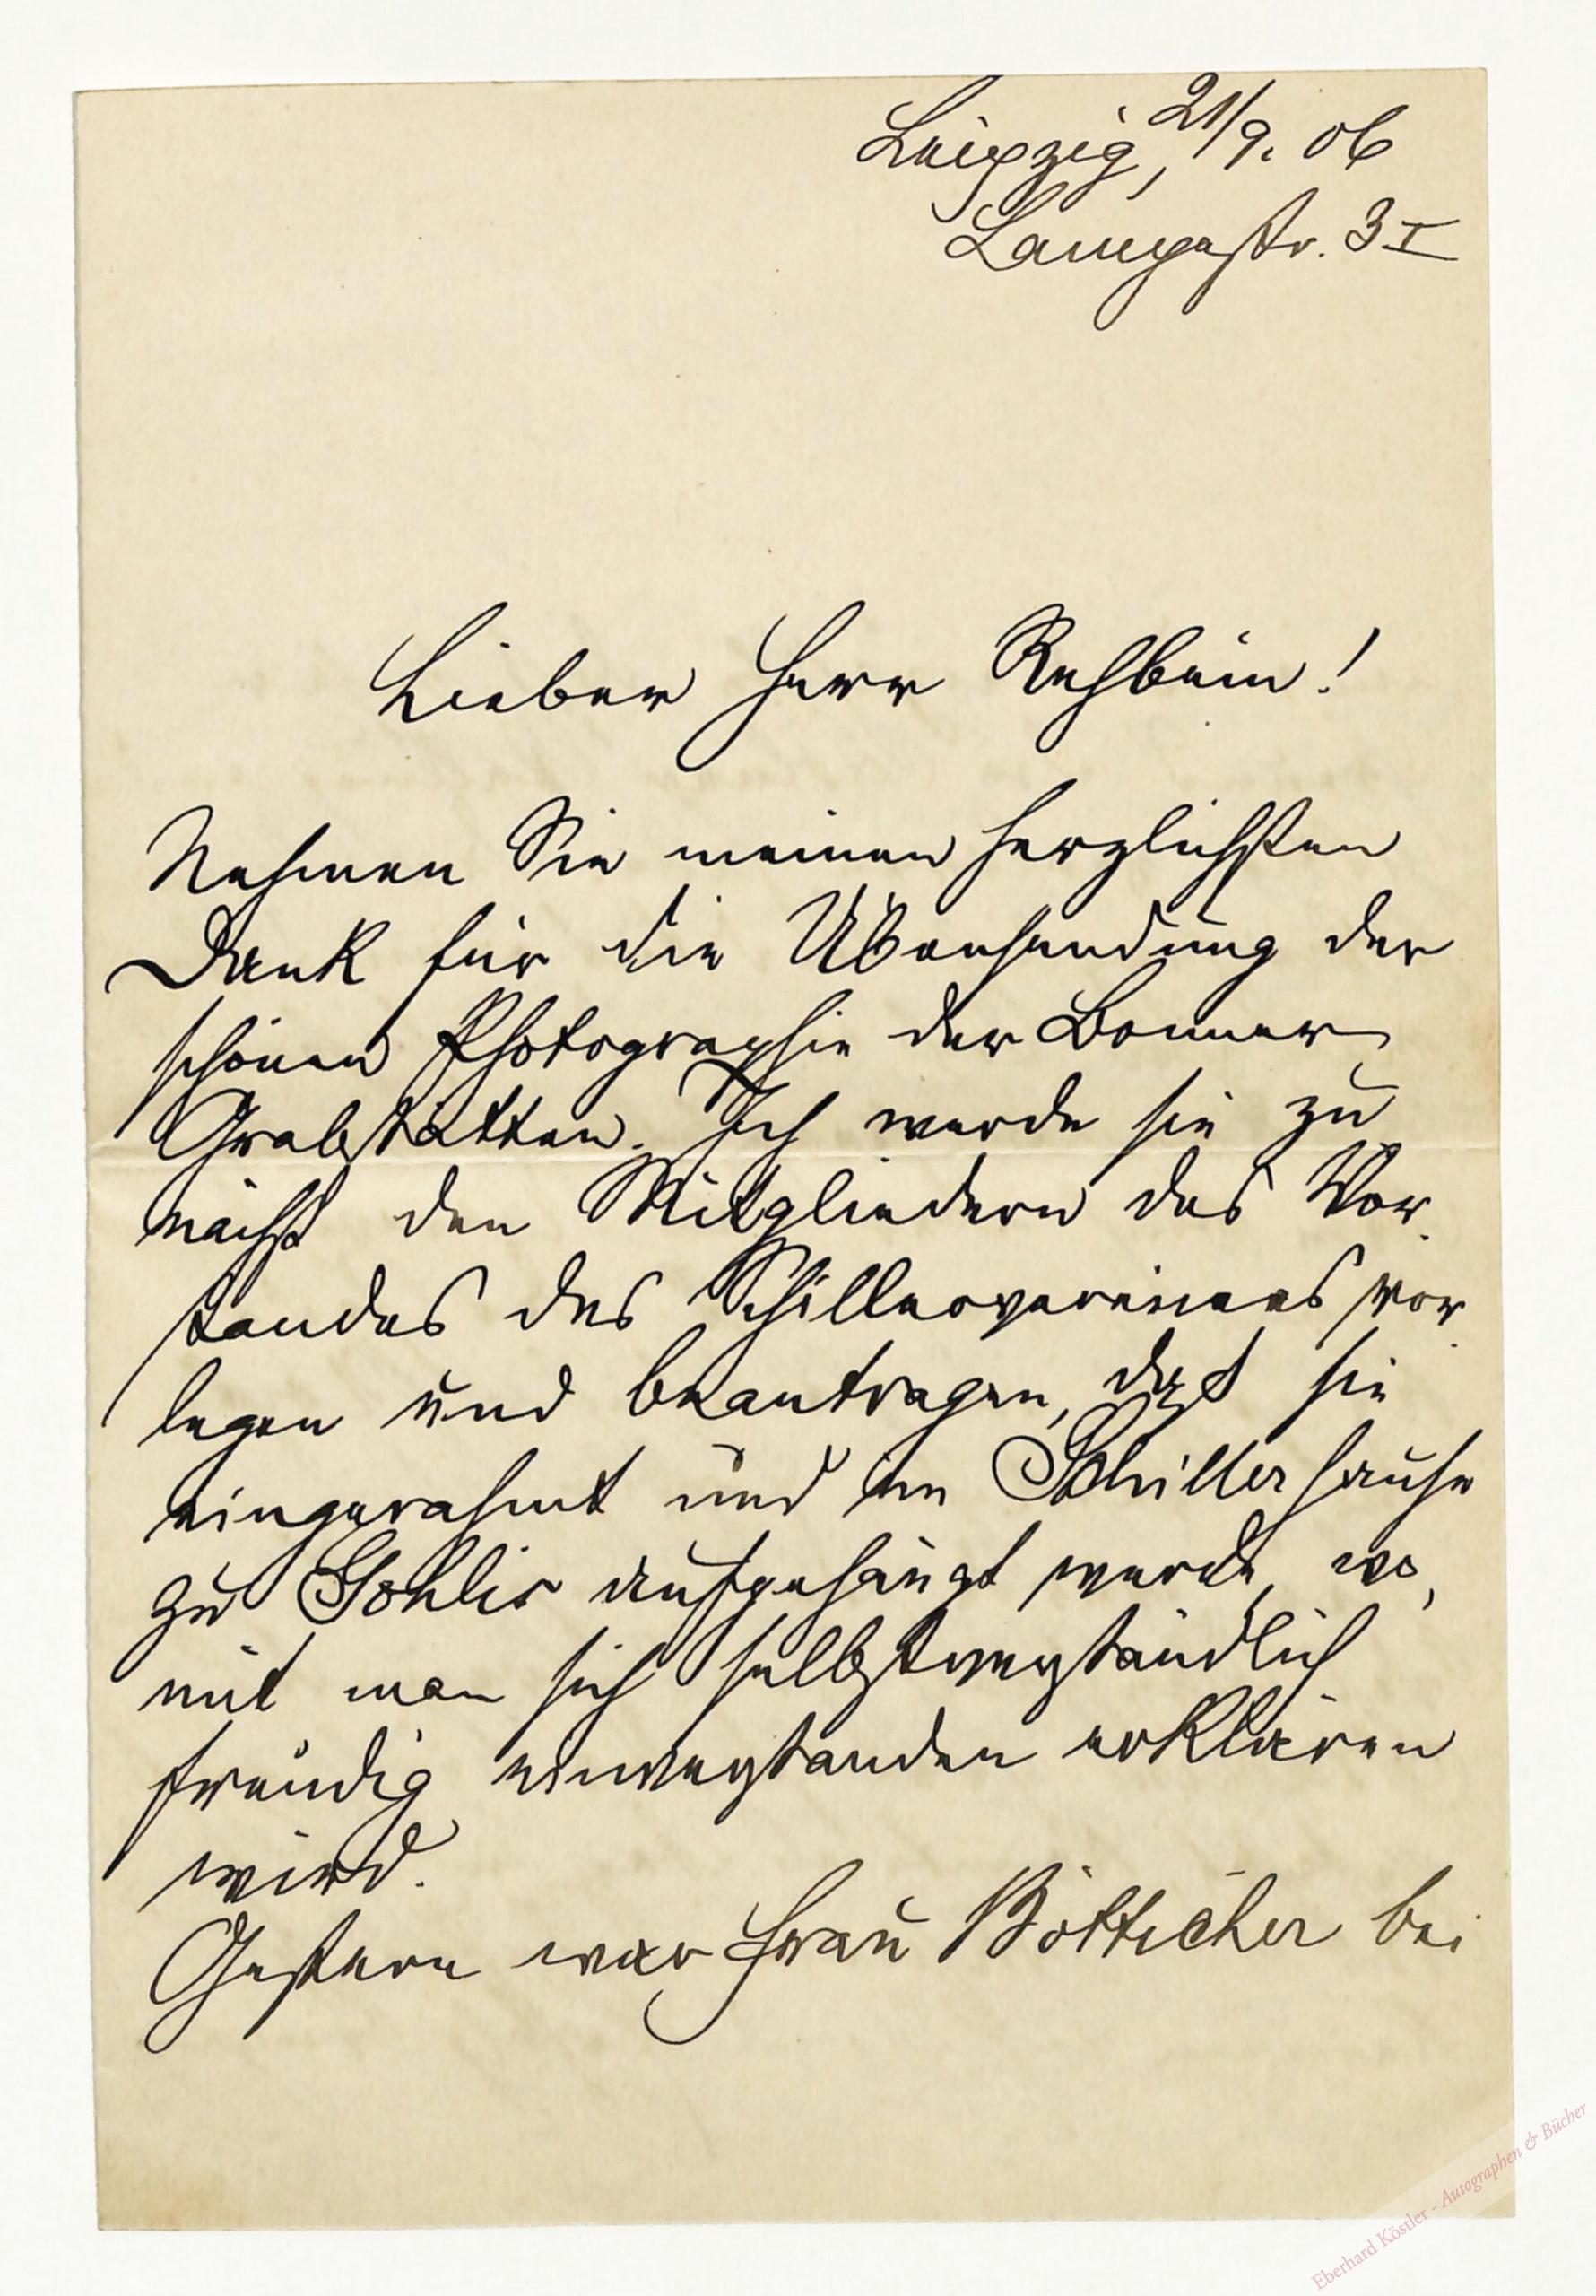 Leipzig, 21/9. 06
Langestr. 3 I
Lieber Herr Rehbein!
Nehmen Sie meinen herzlichsten
Dank für die Übersendung der
schönen Photographie der Bonner
Grabstätten. Ich werde sie zu
nächst den Mitgliedern des Vor-
standes des Schillervereines vor-
legen und beantragen, daß sie
eingerahmt und im Schillerhause
zu Gohlis aufgehängt werde, wo,
mit man sich selbstverständlich
freudig einverstanden erklären
wird.
Gestern war Frau Bötticher bei
Eberhard Köstler - Autographen & Bücher